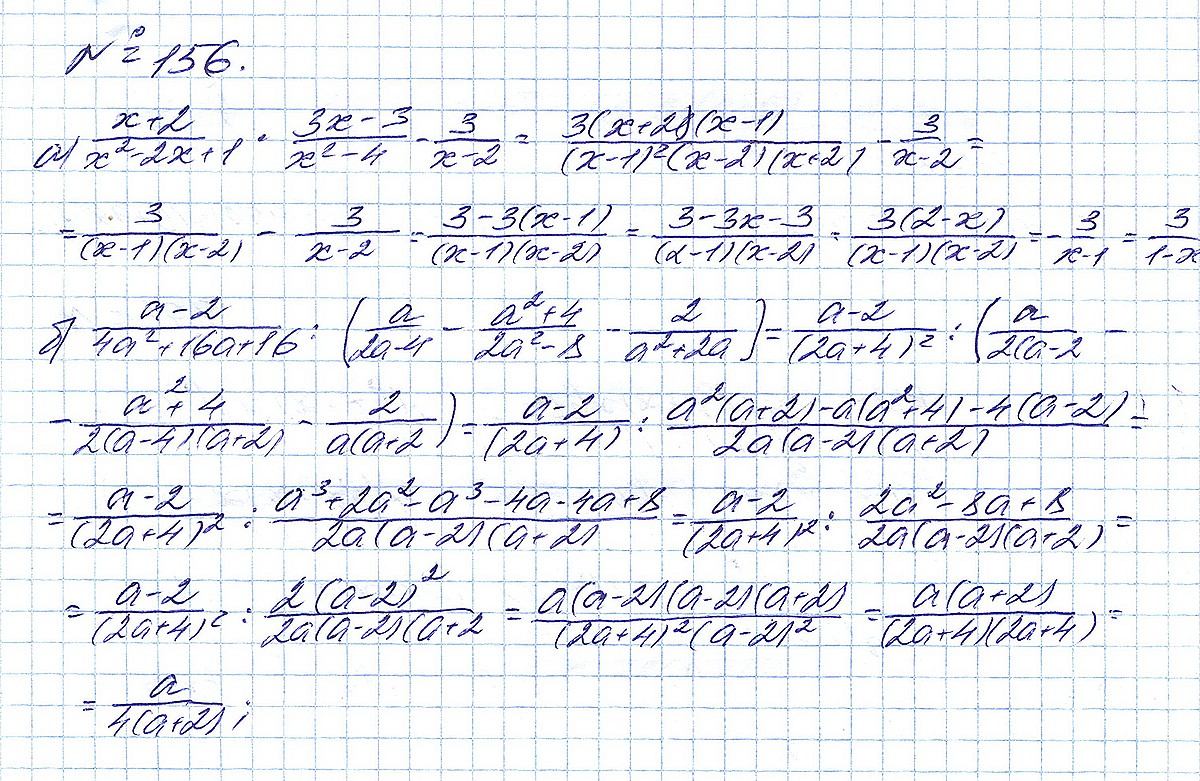 № 156.
а) \frac{x+2}{x^2-2x+1} · \frac{3x-3}{x^2-4} - \frac{3}{x-2} = \frac{3(x+2)(x-1)}{(x-1)^2(x-2)(x+2)} - \frac{3}{x-2} =
= \frac{3}{(x-1)(x-2)} - \frac{3}{x-2} = \frac{3-3(x-1)}{(x-1)(x-2)} = \frac{3-3x-3}{(x-1)(x-2)} = \frac{3(2-x)}{(x-1)(x-2)} = -\frac{3}{x-1} = \frac{3}{1-x}
б) \frac{a-2}{4a^2+16a+16} : (\frac{a}{2a-4} - \frac{a^2+4}{2a^2-8} - \frac{2}{a^2+2a}) = \frac{a-2}{(2a+4)^2} : (\frac{a}{2(a-2} -
- \frac{a^2+4}{2(a-4)(a+2)} - \frac{2}{a(a+2}) = \frac{a-2}{(2a+4)} : \frac{a^2(a+2)-a(a^2+4)-4(a-2)}{2a(a-2)(a+2)} =
= \frac{a-2}{(2a+4)^2} : \frac{a^3+2a^2-a^3-4a-4a+8}{2a(a-2)(a+2)} = \frac{a-2}{(2a+4)^2} : \frac{2a^2-8a+8}{2a(a-2)(a+2)} =
= \frac{a-2}{(2a+4)^2} : \frac{2(a-2)^2}{2a(a-2)(a+2} = \frac{a(a-2)(a-2)(a+2)}{(2a+4)^2(a-2)^2} = \frac{a(a+2)}{(2a+4)(2a+4)} =
= \frac{a}{4(a+2)};